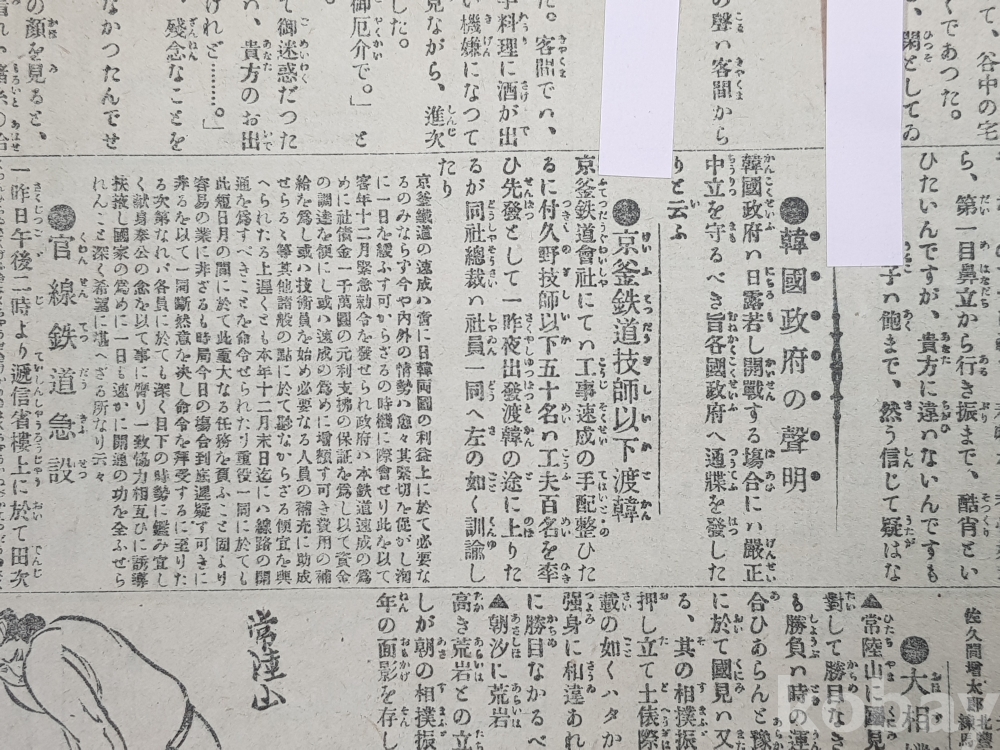 て、谷中の宅
くであつた。
閑としてゐ
の聲ハ客間から
た。客間でハ、
料理に酒が出
い機嫌になつて
見ながら、進次
した。
御厄介で。」と
て御迷惑だつた
ハ、貴方のお出
けれど……。」
殘念なことを
なかつたんでせ
の顔を見ると、
ら、第一目鼻立から行き振まで、酷肖とい
ひたいんですが、貴方に違ハないんですも
子ハ飽まで、然う信じて疑はな
●韓國政府の聲明
韓國政府ハ日露若し開戰する塲合にハ嚴正
中立を守るべき旨各國政府へ通牒を發した
りと云ふ
●京釜鉄道技師以下渡韓
京釜鉄道會社にてハ工事速成の手配整ひた
るに付久野技師以下五十名ハ工夫百名を率
ひ先發として一昨夜出發渡韓の途に上りた
るが同社總裁ハ社員一同へ左の如く訓諭し
たり
京釜鐵道の速成ハ啻に日韓兩國の利益上に於て必要な
るのみならず今や内外の情勢ハ愈々其緊切を促がし洵
に一日を緩ふす可からざるの時機に際會せり此を以て
客年十二月緊急勅令を發せられ政府ハ本鉄道速成の爲
めに社債金一千萬圓の元利支拂の保証を爲し以て資金
の調達を便にし或ハ速成の爲めに増額す可き費用の補
給を爲し或ハ技術員を始め必要なる人員の補充に助成
せらるゝ等其他諸般の點に於て尠なからざる便宜を與
へられたる上遲くとも本年十二月末日迄にハ線路の開
通を爲すべきことを命令せられたり重役一同に於ても
此短日月の間に於て此重大なる任務を負ふこと固より
容易の業に非ざるも時局今日の塲合到底遲疑す可きに
非るを以て一同斷然意を决し命令を拜受するに至りた
る次第なれバ各員に於ても深く目下の時勢に鑑み宜し
く献身奉公の念を以て事に膺り一致恊力相互ひに誘導
扶掖し國家の爲めに一日も速かに開通の功を全ふせら
れんこと深く希望に堪へざる所なり云々
●官線鉄道急設
一昨日午後二時より遞信省樓上に於て田次
佐久間増太郎
●大相
▲常陸山に國見
對して勝目なき
も勝負ハ時の運
合ひあらんと豫
に於て國見ハ又
る、其の相撲振
押し立て土俵際
載の如くハタか
強身に和違あれ
に勝目なかるべ
▲朝汐に荒岩
高き荒岩との立
しが朝の相撲振
年の面影を存し
常陸山
kobay